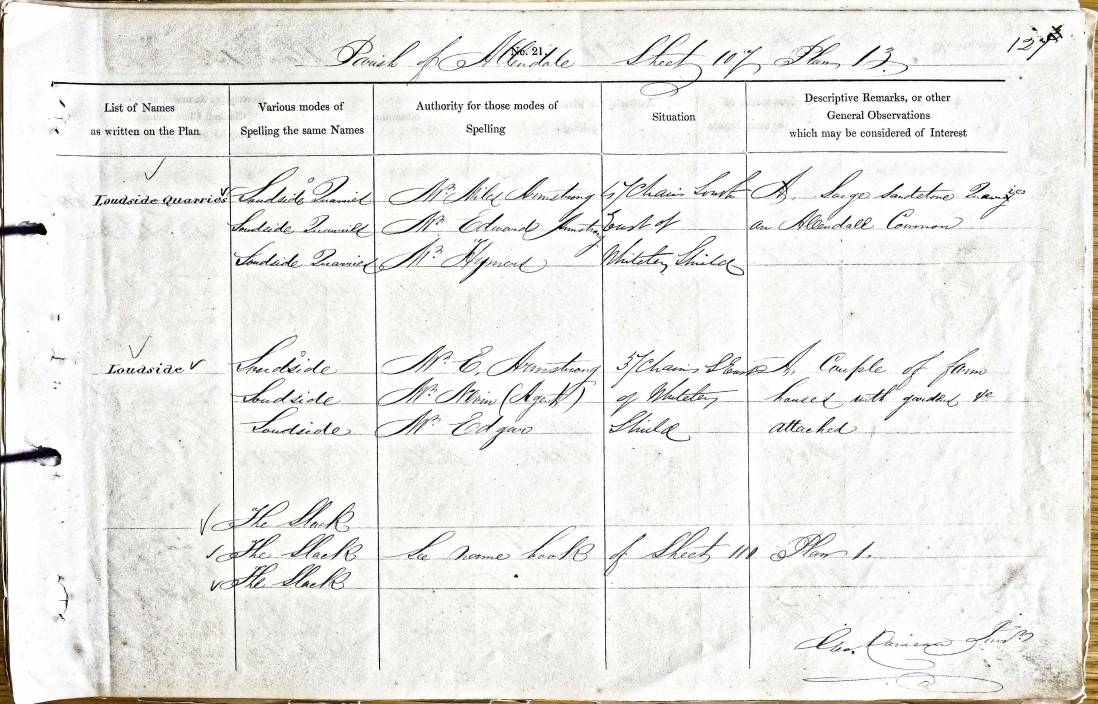 No. 21.
Parish of Allendale Sheet 107 Plan 13
127
List of Names
as written on the Plan
Various modes of
Spelling the same Names
Authority for those modes of
Spelling
Situation
Descriptive Remarks, or other
General Observations
which may be considered of Interest
Loudside Quarries
Loudside Quarries
Loudside Quarries
Loudside Quarries
Mr. Armstrong
Mr. Edward Armstrong
Mr. Hymers
Chains South
East of
Whiteley Shield
A. Large Sandstone
on Allendale Common
Loudside
Loudside
Loudside
Loudside
Mr. E. Armstrong
Mr. Nevin (Agent)
Mr. Edgar
Chains S East
of Whiteley
Shield
A. Couple of farm
houses with gardens &c
attached
The Slack
The Slack See name book of Sheet 110 Plan 1.
The Slack